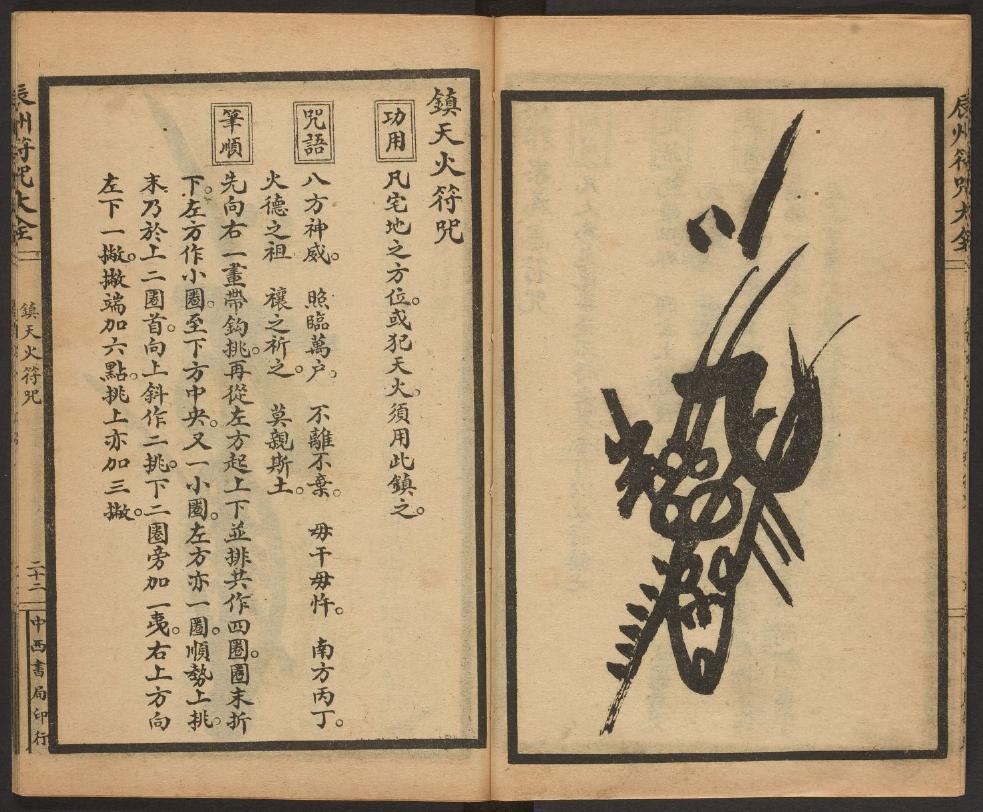 鎮天火符咒
功用
凡宅地之方位。或犯天火。須用此鎮之。
咒語
八方神威。　照臨萬戶。　不離不棄。　毋干毋忤。　南方丙丁。
火德之祖　禳之祈之。　莫親斯土。
筆順
先向右一畫帶鈎挑。再從左方起上下並排共作四圈。圈末折
下。左方作小圈。至下方中央。又一小圈。左方亦一圈。順勢上挑。
末乃於上二圈首。向上斜作二挑。下二圈旁加一夷。右上方向
左下一撇。撇端加六點。挑上亦加三撇。
辰州符咒大全
鎮天火符咒
二十二
中西書局印行
辰州符咒大全